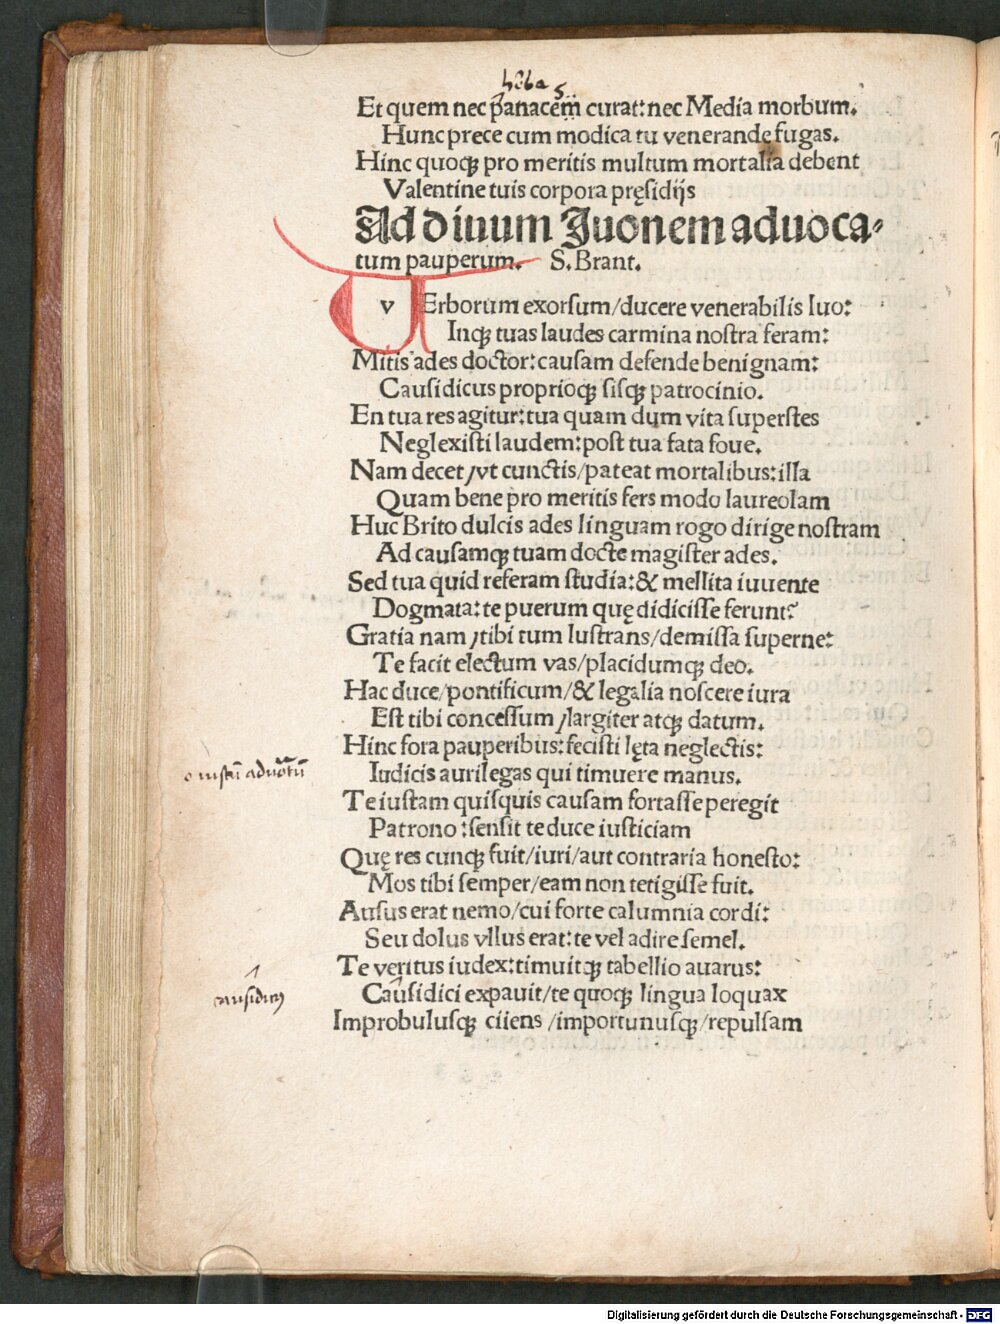 Et quem nec panacem curat: nec Media morbum.
Hunc prece cum modica tu venerande fugas.
Hinc quoqꝫ pro meritis multum mortalia debent
Valentine tuis corpora pręsidijs
Ad diuum Iuonem aduoca⸗
tum pauperum. S. Brant.
v Erborum exorsum/ducere venerabilis Iuo:
Inqꝫ tuas laudes carmina nostra feram:
Mitis ades doctor: causam defende benignam:
Causidicus proprioqꝫ sisqꝫ patrocinio.
En tua res agitur: tua quam dum vita superstes
Neglexisti laudem: post tua fata foue.
Nam decet/vt cunctis/pateat mortalibus: illa
Quam bene pro meritis fers modo laureolam
Huc Brito dulcis ades linguam rogo dirige nostram
Ad causamqꝫ tuam docte magister ades.
Sed tua quid referam studia: & mellita iuuente
Dogmata: te puerum quę didicisse ferunt?
Gratia nam/tibi tum lustrans/demissa superne:
Te facit electum vas/placidumqꝫ deo.
Hac duce/pontificum/& legalia noscere iura
Est tibi concessum/largiter atqꝫ datum.
Hinc fora pauperibus: fecisti lęta neglectis:
Iudicis aurilegas qui timuere manus.
Te iustam quisquis causam fortasse peregit
Patrono: sensit te duce iusticiam
Quę res cunqꝫ fuit/iuri/aut contraria honesto:
Mos tibi semper/eam non tetigisse fuit.
Ausus erat nemo/cui forte calumnia cordi:
Seu dolus vllus erat: te vel adire semel.
Te veritus iudex: timuitqꝫ tabellio auarus:
causidicus
Causidici expauit/te quoqꝫ lingua loquax
Improbulusqꝫ cliens/importunusqꝫ/repulsam
Digitalisierung gefördert durch die Deutsche Forschungsgemeinschaft - DFG